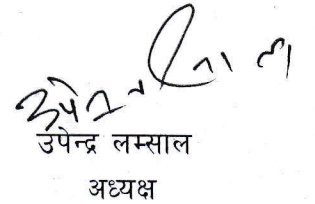 उपेन्द्र लम्साल
अध्यक्ष